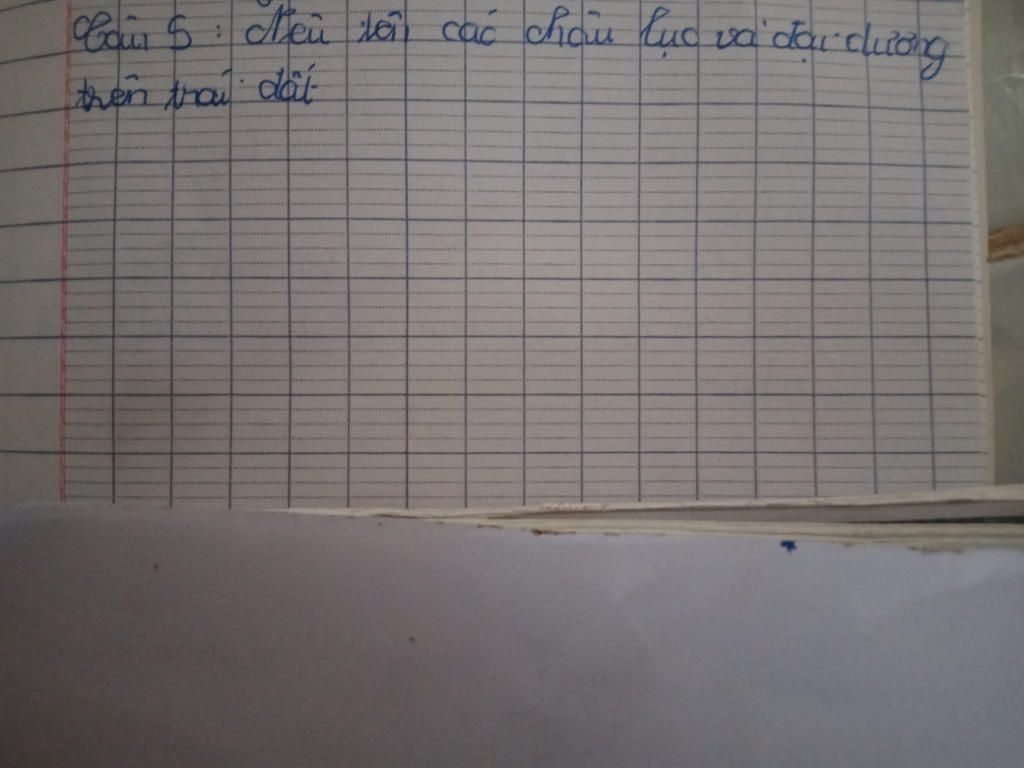 Câu 5 : Nêu tên các châu lục và đại dương
trên trái đất